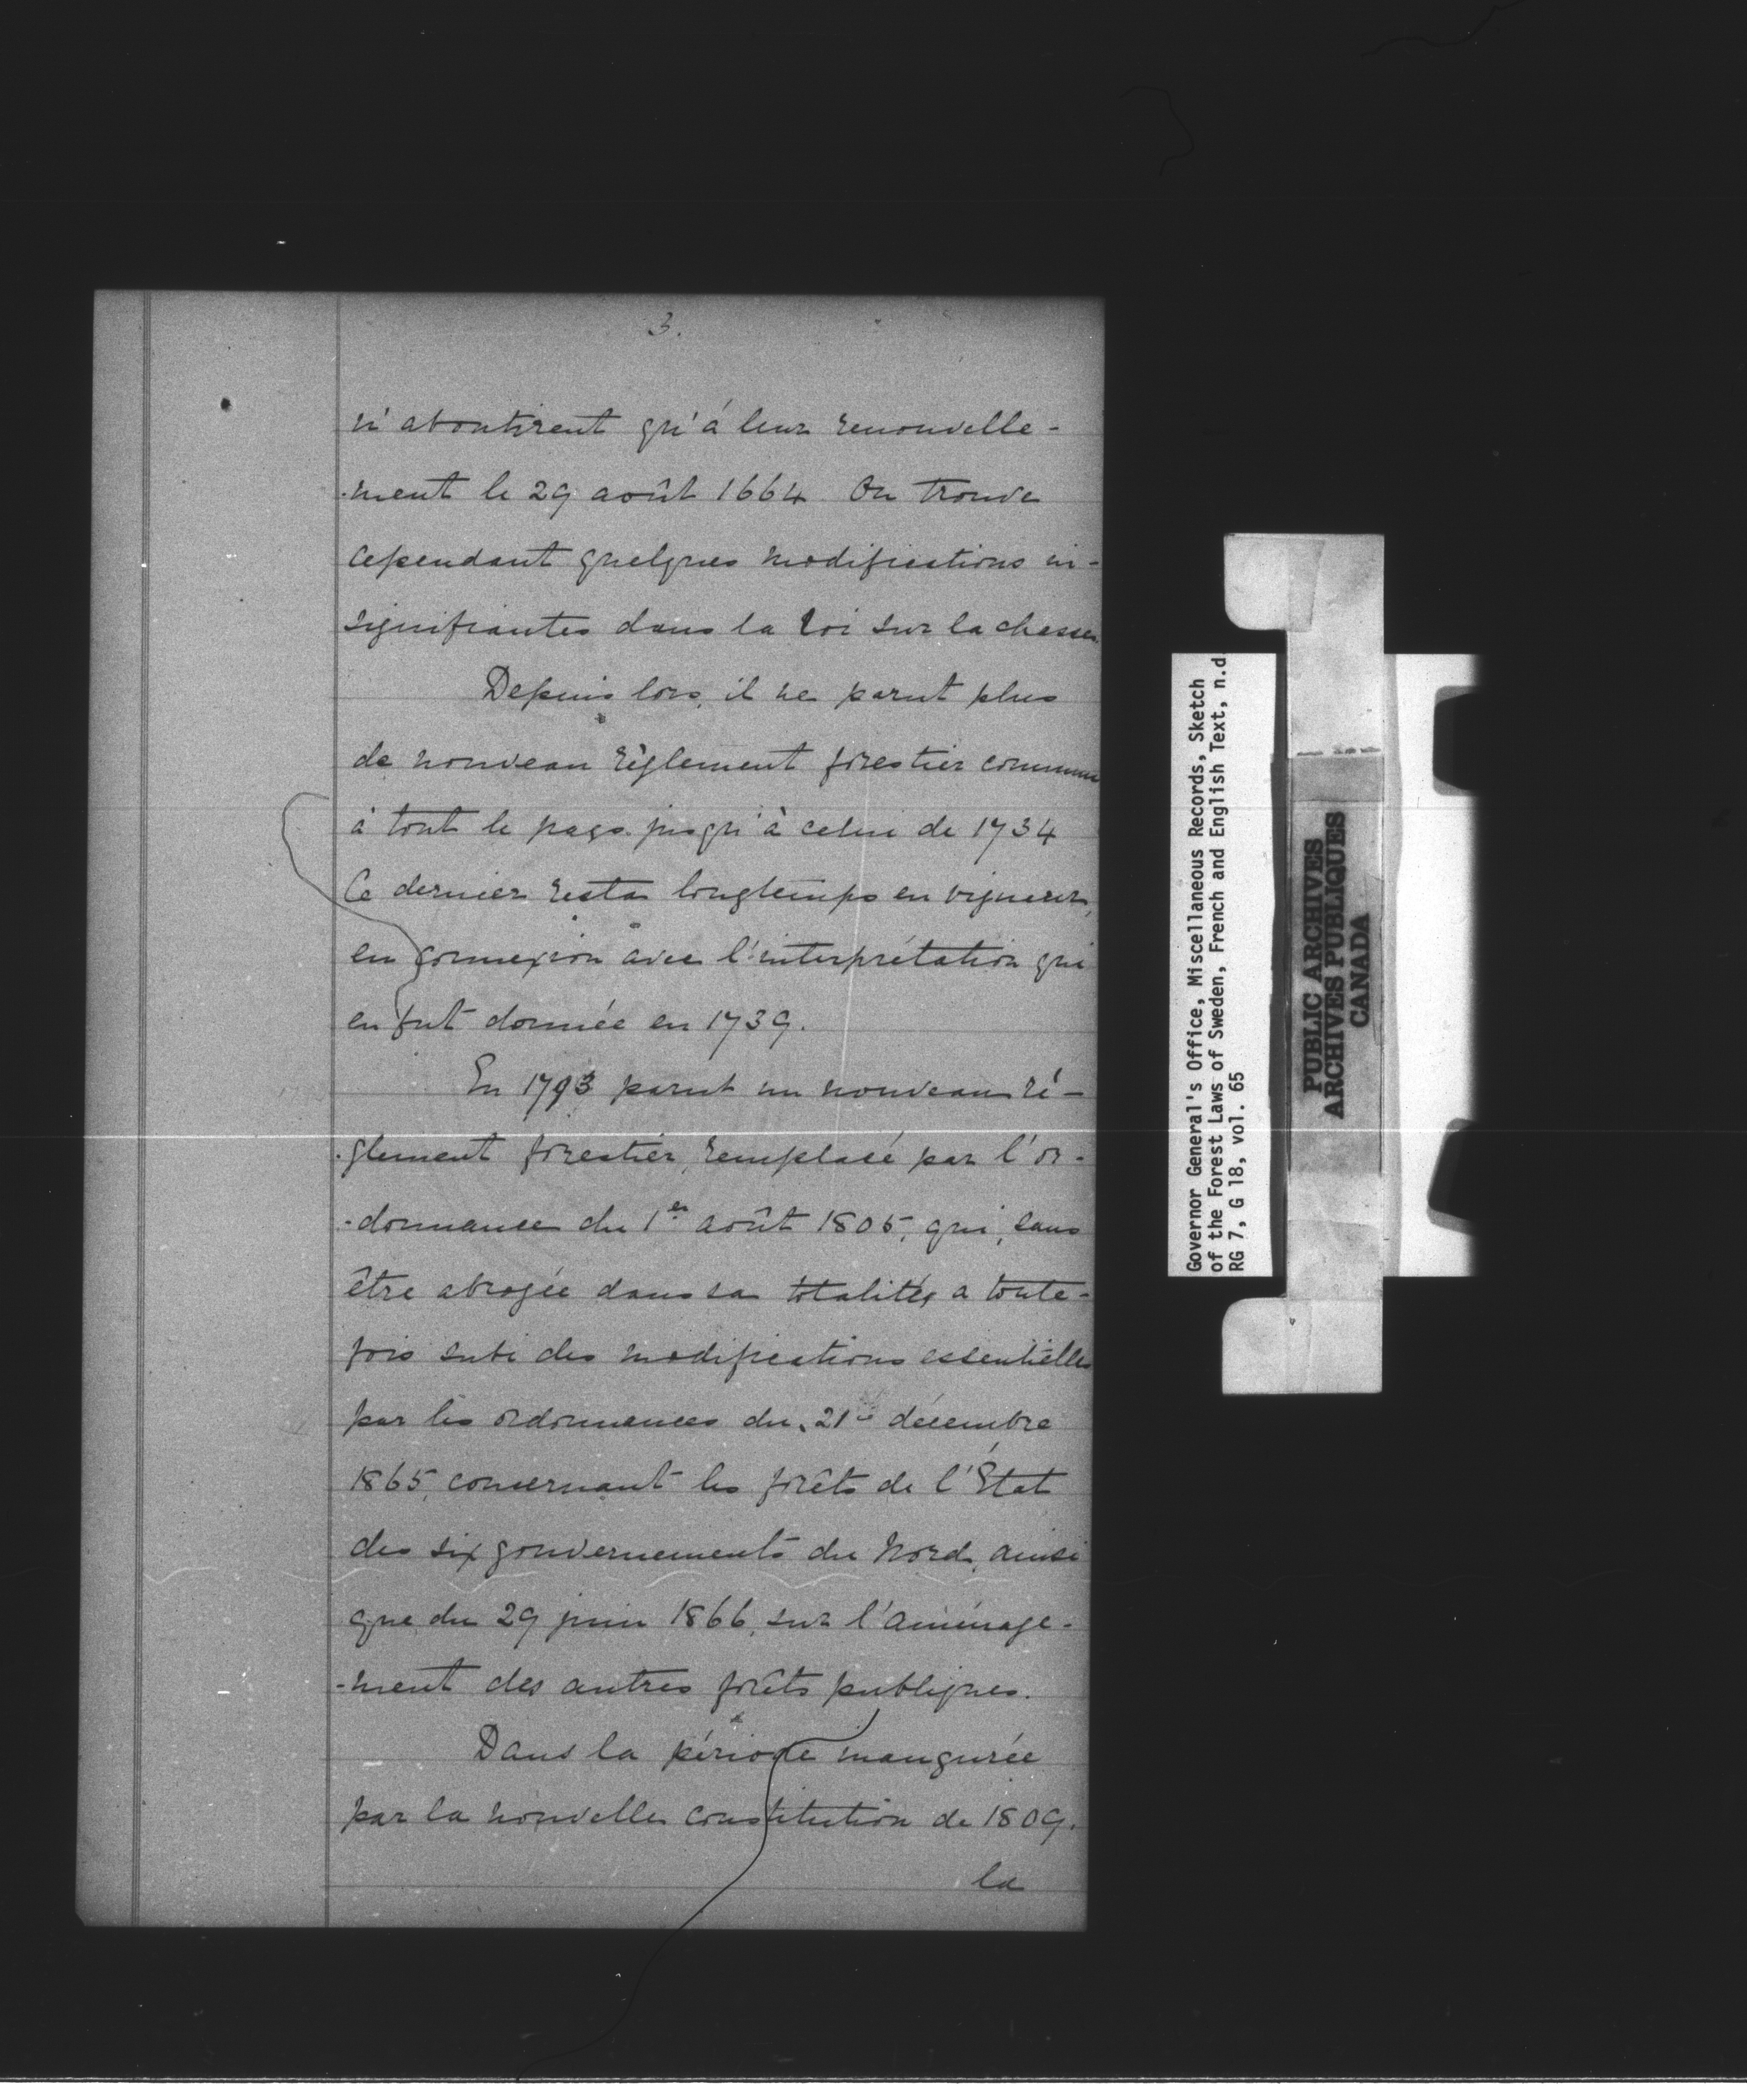 3.
n'aboutirent qu'à leur renouvelle-
-ment le 29 août 1664 On trouve
cependant quelques modifications in-
signifiantes dans la loi sur la chasse.
Depuis lors, il ne parut plus
de nouveau règlement forestier commun
à tout le pays jusqu'à celui de 1734
Ce dernier resta longtemps en vigueur,
en connexion avec l'interprétation qui
en fut donnée en 1739.
En 1793 parut un nouveau ré-
-glement forestier, remplacé par l'or-
-donnance du 1er août 1805, qui, sans
être abrogée dans sa totalité, a toute-
fois subi des modifications essentielles
par les ordonnances du 21 décembre
1865, concernant les forêts de l'État
des six gouvernements du Nord, ainsi
que du 29 juin 1866, sur l'aménage-
-ment des autres forêts publiques.
Dans la période inaugurée
par la nouvelle constitution de 1809.
la
Governor General's Office, Miscellaneous Records, Sketch
of the Forest Laws of Sweden, French and English Text, n.d.
RG 7, G 18, vol. 65
PUBLIC ARCHIVES
ARCHIVES PUBLIQUES
CANADA